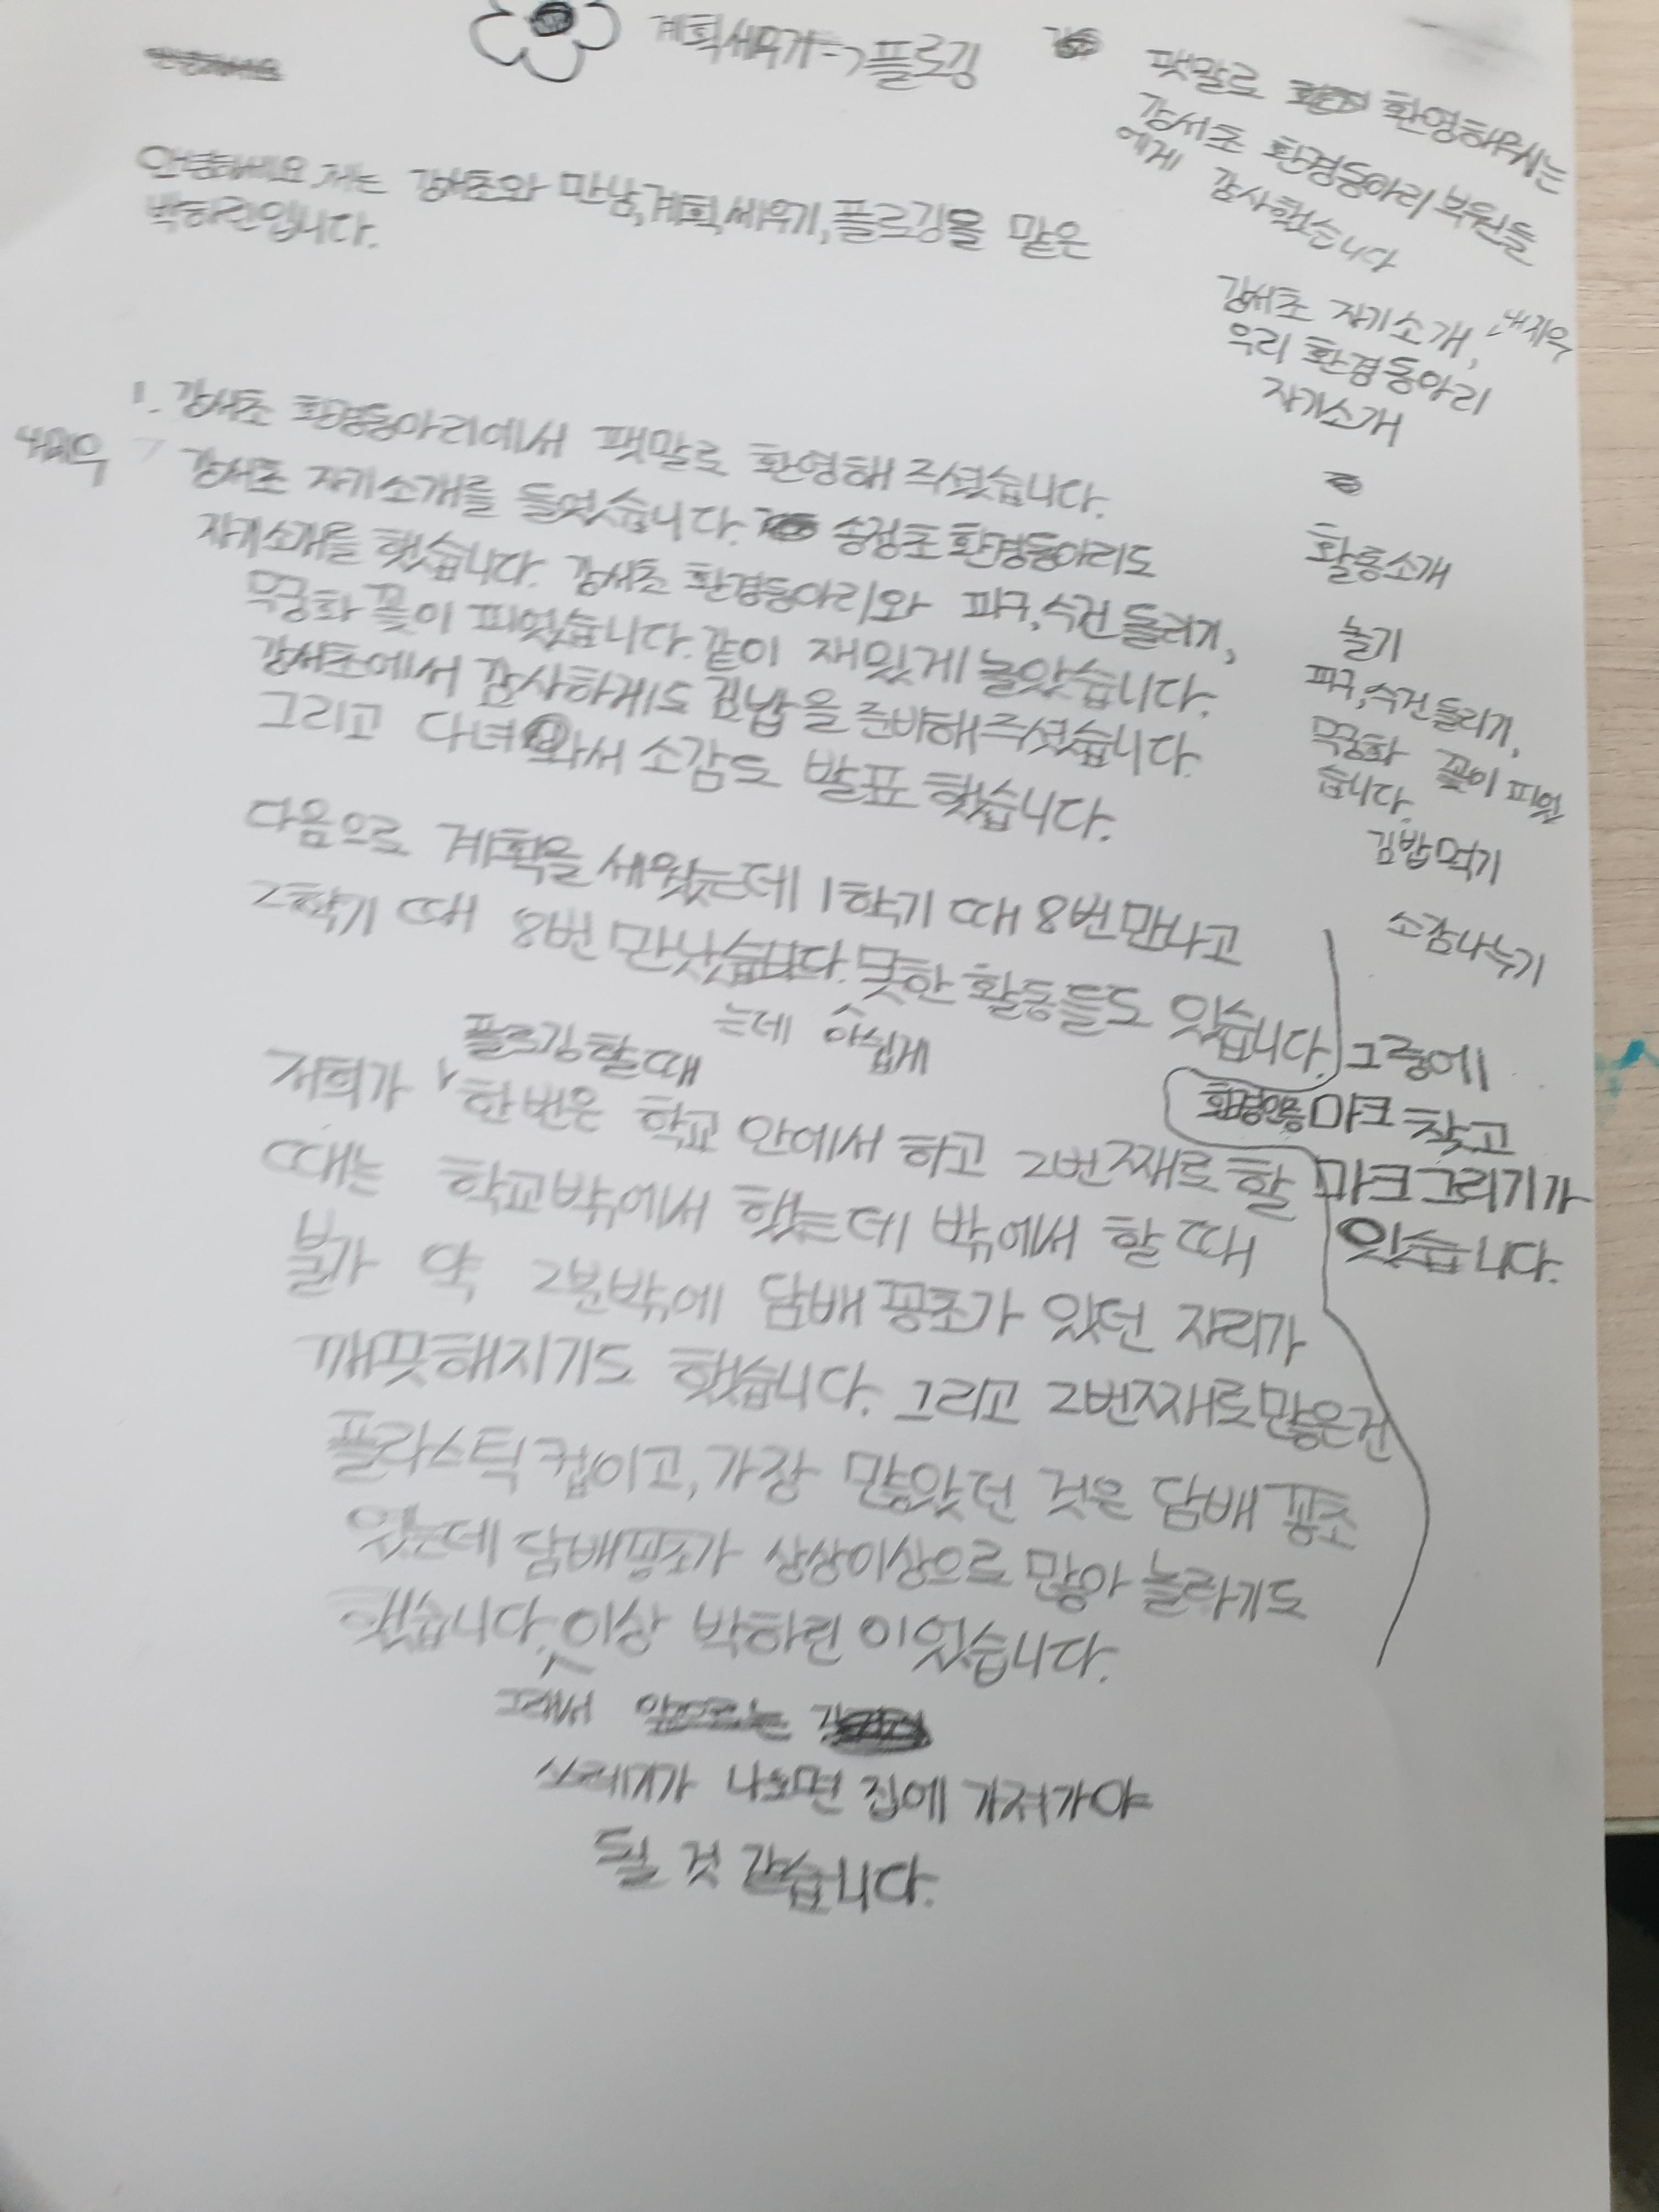 계획세우기->플로깅
안녕하세요 저는 강서초와 만남,계획세우기,플로깅을 맡은
박하린입니다.
1. 강서초 환경동아리에서 팻말로 환영해 주셨습니다.
강서초 자기소개를 들었습니다. 송정초 환경동아리도
자기소개를 했습니다. 강서초 환경동아리와 피구,수건 돌리기,
무궁화 꽃이 피었습니다. 같이 재밌게 놀았습니다.
강서초에서 감사하게도 김밥을 준비해주셨습니다.
그리고 다녀와서 소감도 발표 했습니다.
다음으로 계획을 세웠는데 1학기 때 8번 만나고
2학기 때 8번 만났습니다. 못한 활동들도 있습니다.
는데 아쉽게
플로깅할때
저희가 한번은 학교 안에서 하고 2번째로 할
때는 학교밖에서 했는데 밖에서 할 때
불가 약 2분밖에 담배꽁초가 있던 자리가
깨끗해지기도 했습니다. 그리고 2번째로많은건
플라스틱컵이고,가장 많았던 것은 담배꽁초
였는데 담배꽁초가 상상이상으로 많아 놀라기도
했습니다. 이상 박하린 이었습니다.
그래서 앞으로는
쓰레기가 나오면 집에 가져가야
될 것 같습니다.
팻말로 환영해주시는
강서초 환경동아리 부원들
에게 감사했습니다
강서초 자기소개,
우리 환경동아리
자기소개
활동소개
놀기
피구,수건돌리기,
무궁화 꽃이 피었
습니다.
김밥먹기
소감나누기
그중에
환경인증마크 찾고
마크그리기가
있습니다.